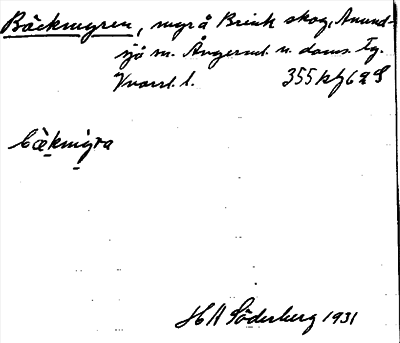 Bäckmyren, myr å Brink skog, Anund-
sjö sn. Ångerml. n. doms. Tg.
Kvarnl. 1. 355 kf 62 S
bäkmýra
H A Söderberg 1931